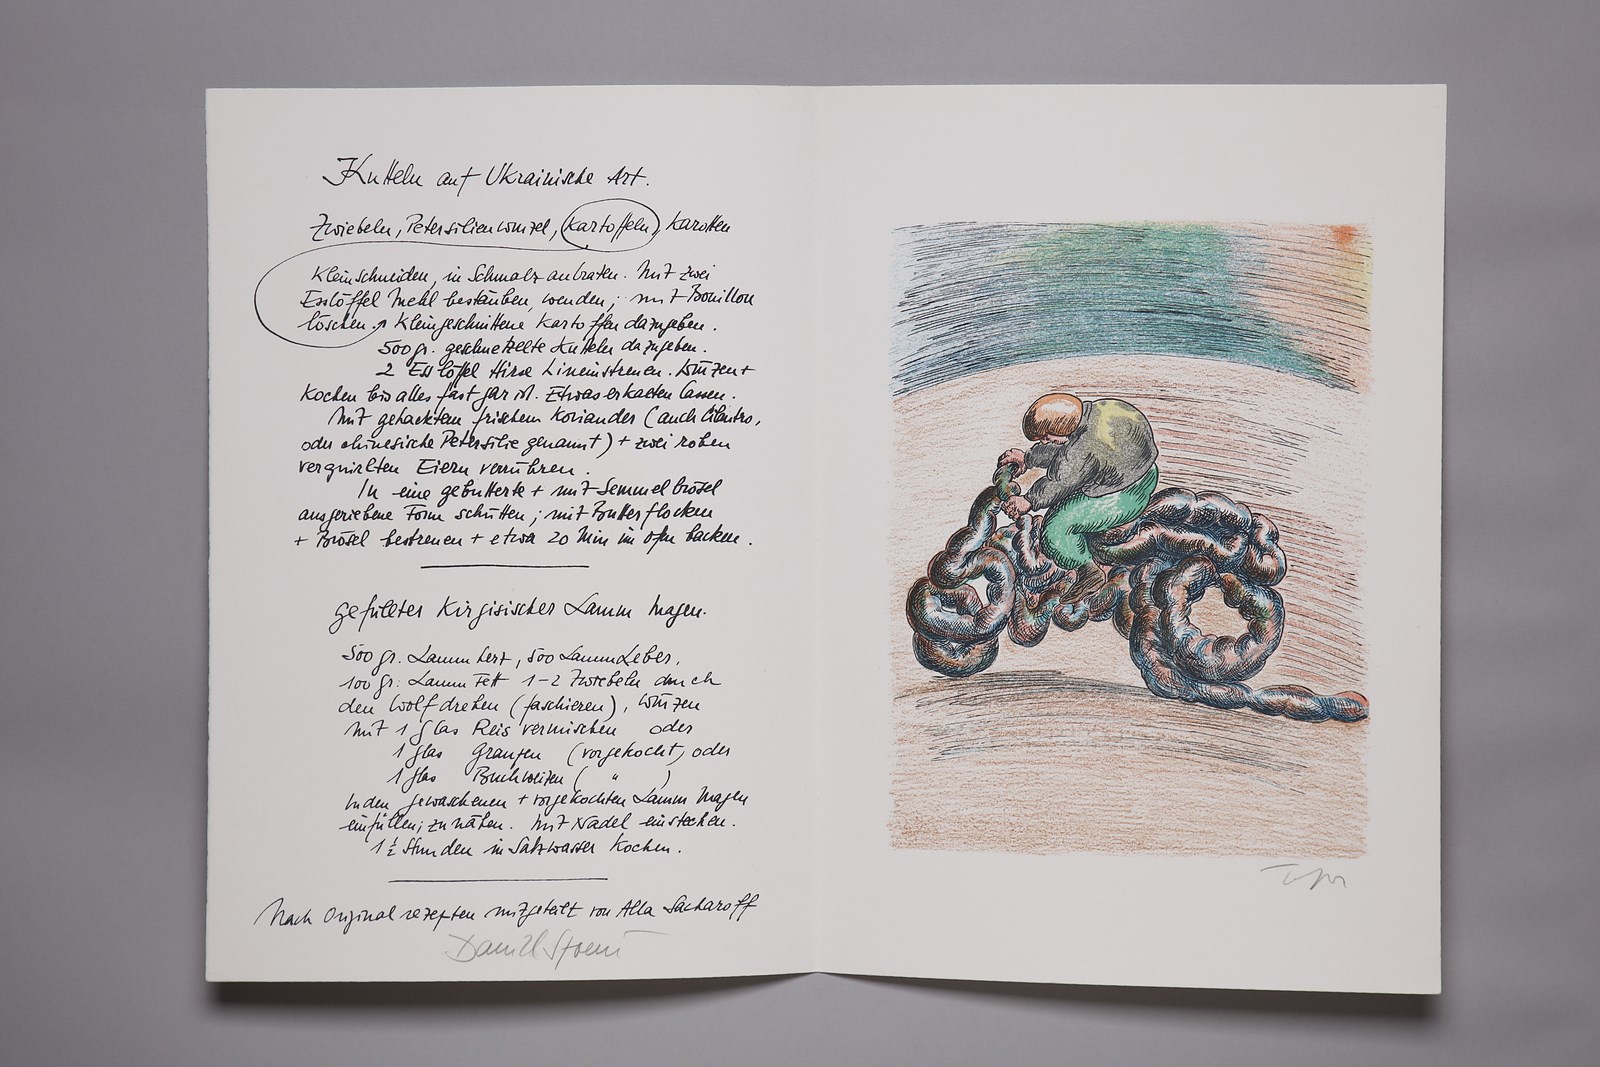 Kutteln auf Ukrainische Art.
Zwiebeln, Petersilienwurzel, Kartoffeln, Karotten
Kleinschneiden, in Schmalz anbraten. Mit zwei
Esslöffel Mehl bestäuben, wenden; mit Bouillon
löschen. Kleingeschnittene Kartoffeln dazugeben.
500 gr. geschnetzelte Kutteln dazugeben.
2 Esslöffel Hirse hineinstreuen. Würzen +
Kochen bis alles fast gar ist. Etwas erkalten lassen.
Mit gehacktem frischem Koriander (auch Cilantro,
oder chinesische Petersilie genannt) + zwei rohen
verquirlten Eiern verrühren.
In eine gebutterte + mit Semmelbrösel
ausgeriebene Form schütten; mit Butterflocken
+ Brösel bestreuen + etwa 20 Min im Ofen backen.
gefüllter Kirgisischer Lamm Magen.
500 gr. Lamm Herz, 500 Lamm Leber,
100 gr. Lamm Fett 1-2 Zwiebeln durch
den Wolf drehen (faschieren), würzen
Mit 1 glas Reis vermischen oder
1 glas Graupen (vorgekocht) oder
1 glas Buchweizen ( " )
In den gewaschenen + vorgekochten Lamm Magen
einfüllen; zu nähen. Mit Nadel einstechen.
1 ½ Stunden in Salzwasser Kochen.
Nach Originalrezepten mitgeteilt von Alla Sacharoff
Daniel Spoerri
Topor